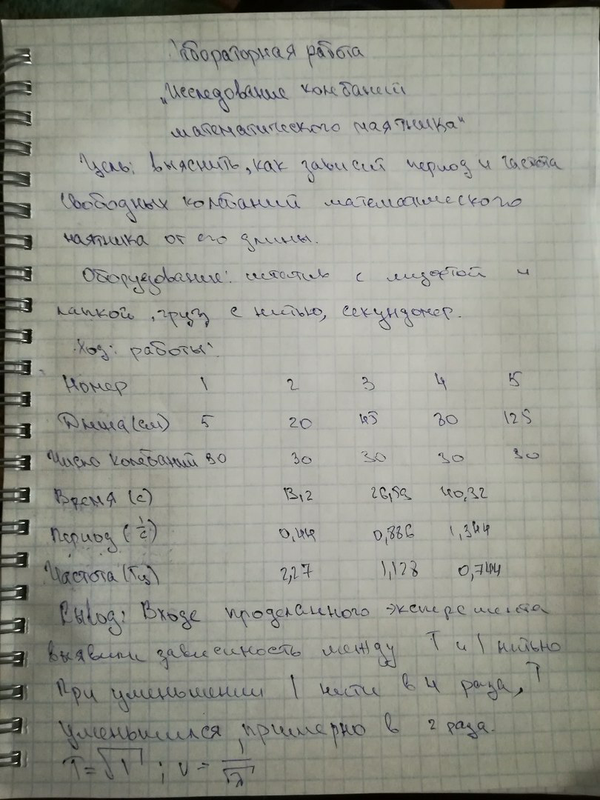 Лабораторная работа
„Исследование колебаний
математического маятника"
Цель: выяснить, как зависит период и частота
свободных колебаний математического
маятника от его длины.
Оборудование: штатив с муфтой и
лапкой, груз с нитью, секундомер.
Ход: работы:
Номер 1 2 3 4 5
Длина (см) 5 20 45 80 125
Число колебаний 30 30 30 30 30
Время (с) 13,2 26,59 40,32
Период (1/с) 0,44 0,886 1,344
Частота (Гц) 2,27 1,128 0,744
Вывод: Входе проделанного эксперемента
выявили зависимость между T и l нитью
При уменьшении l нити в 4 раза, T
уменьшился, примерно в 2 раза.
T = √l ; ν = 1/√l